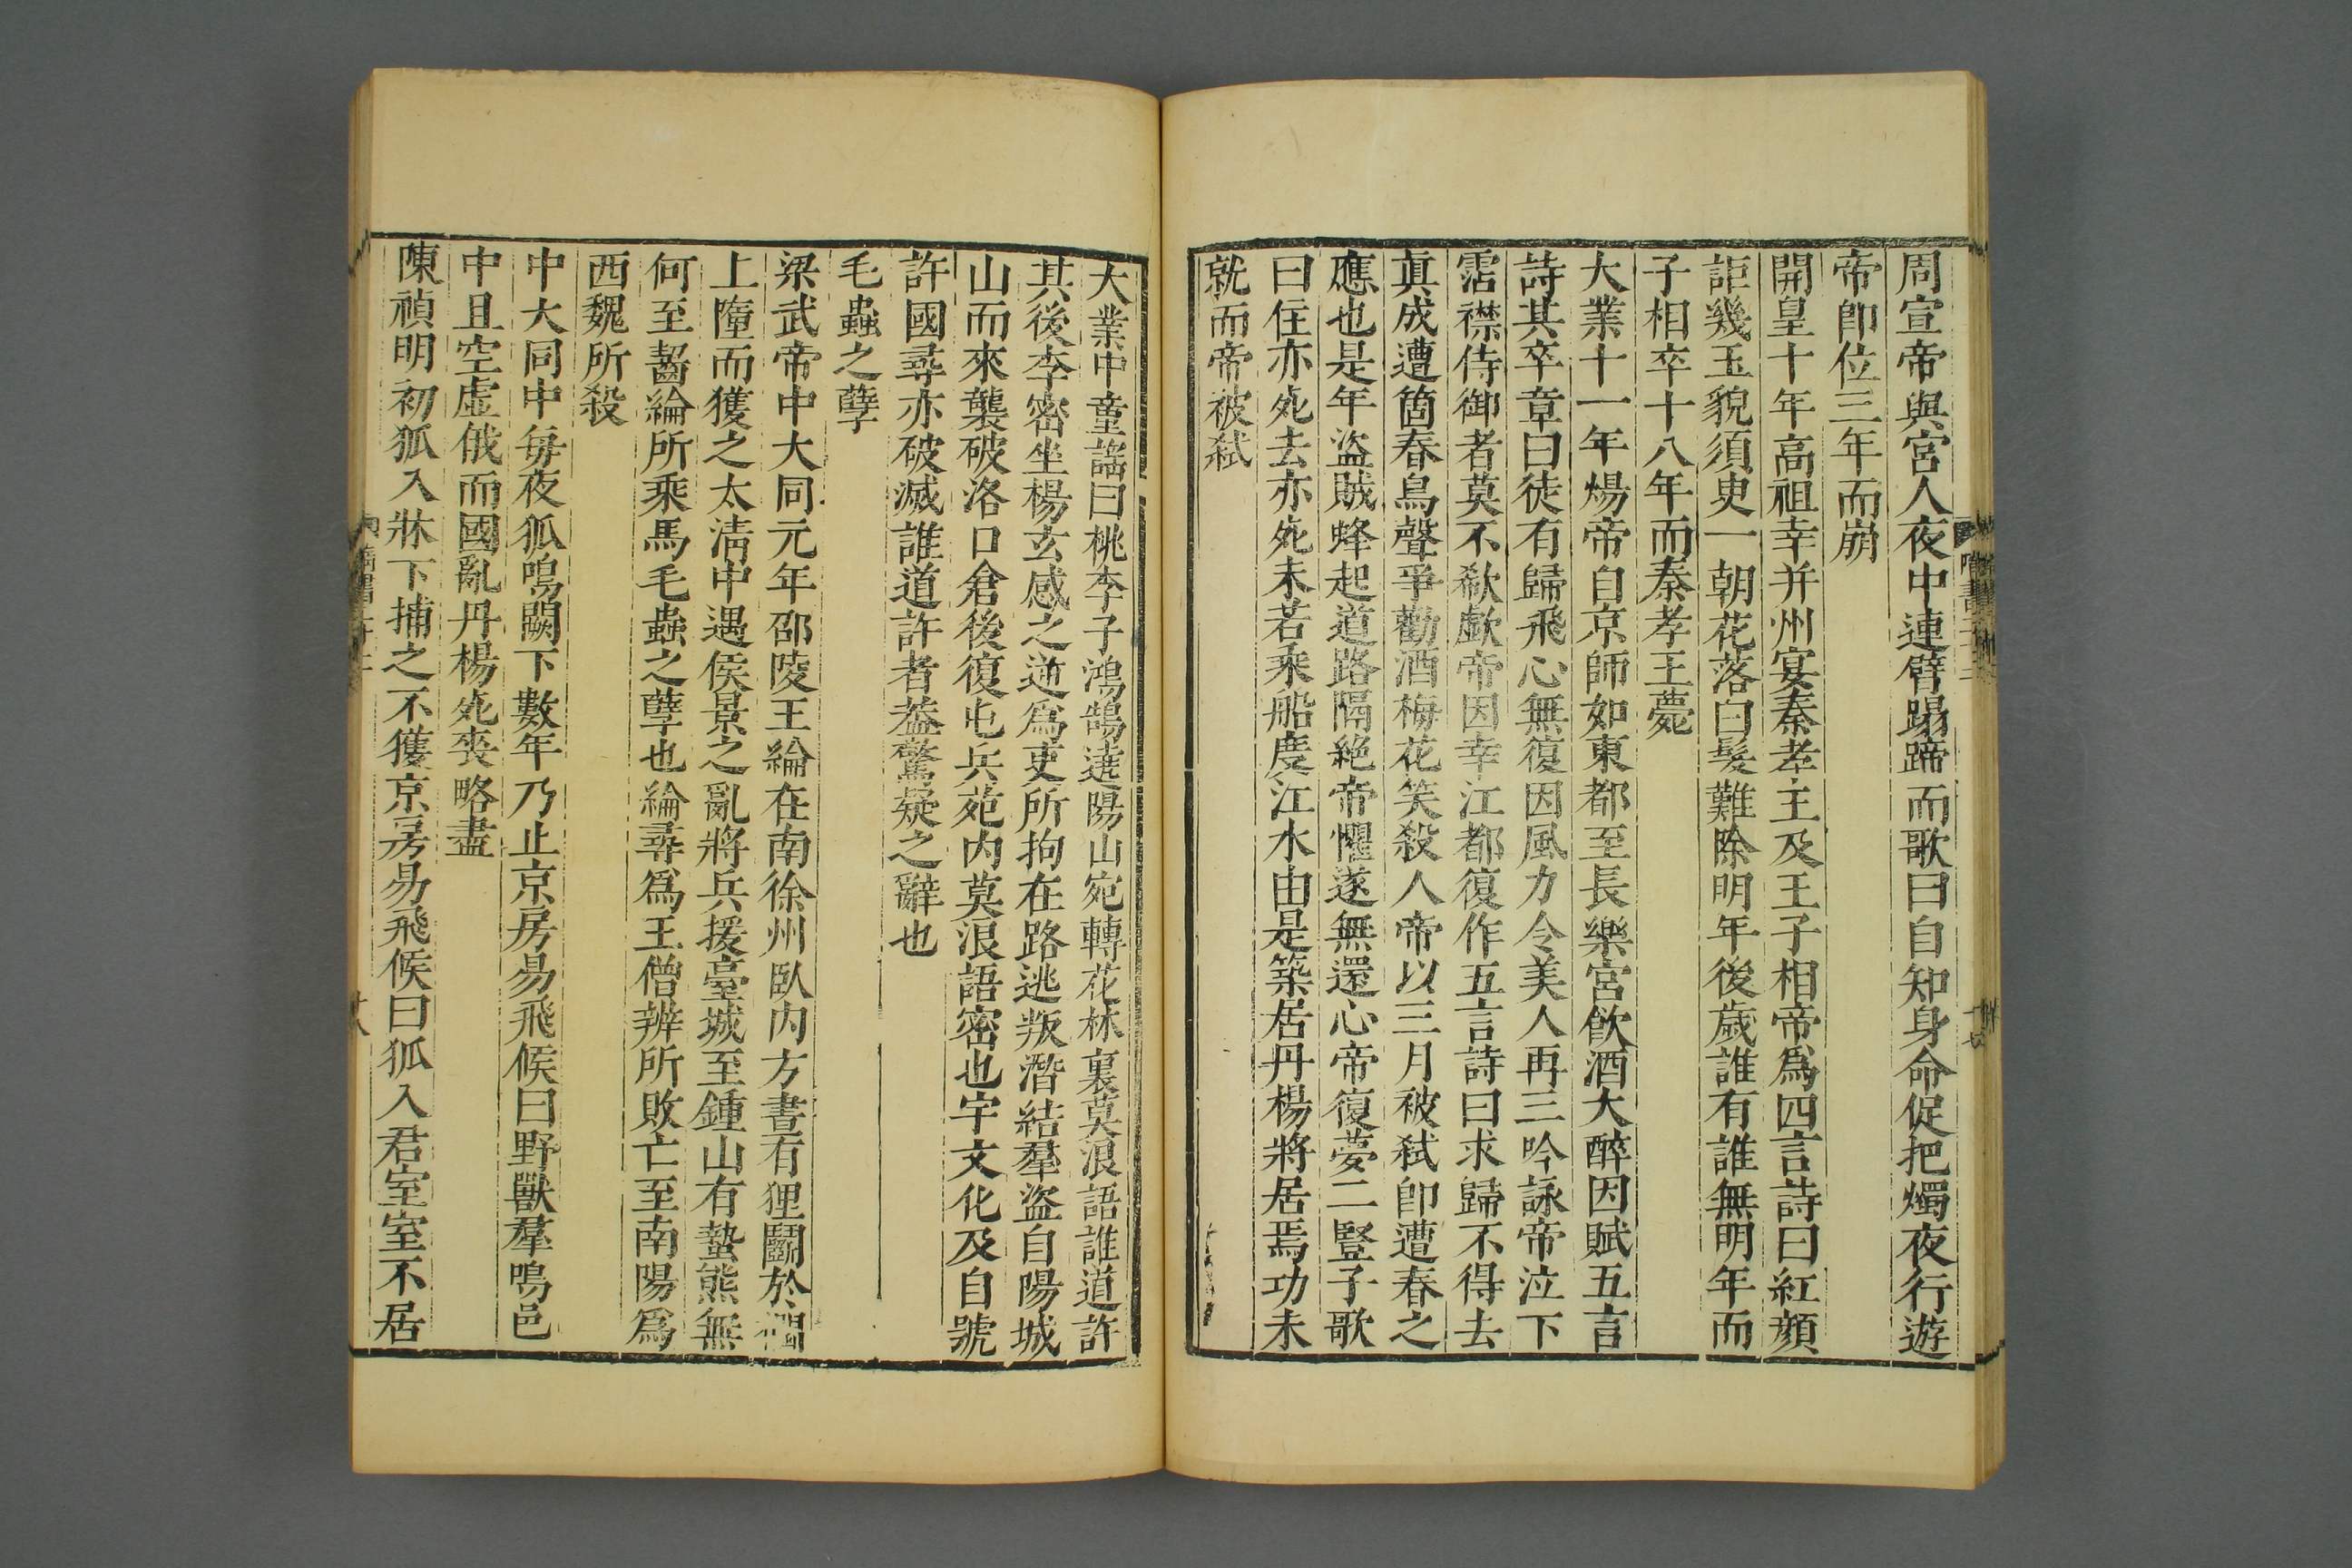 周宣帝與宮人夜中連臂蹋蹄而歌曰自知身命促把燭夜行遊
帝卽位三年而崩
開皇十年高祖幸并州宴秦孝王及王子相帝爲四言詩曰紅顔
詎幾玉貌須臾一朝花落白髮難除明年後歲誰有誰無明年而
子相卒十八年而秦孝王薨
大業十一年煬帝自京師如東都至長樂宮飮酒大醉因賦五言
詩其卒章曰徒有歸飛心無復因風力令美人再三吟詠帝泣下
霑襟侍御者莫不欷歔帝因幸江都復作五言詩曰求歸不得去
眞成遭箇春鳥聲爭勸酒梅花笑殺人帝以三月被弑卽遭春之
應也是年盜賊蜂起道路隔絶帝懼遂無還心帝復夢二豎子歌
曰住亦死去亦死未若乘船度江水由是築居丹楊將居焉功未
就而帝被弑
大業中童謠曰桃李子鴻鵠遶陽山宛轉花林裏莫浪語誰道許
其後李密坐楊玄感之逆爲吏所拘在路逃叛潛結羣盜自陽城
山而來襲破洛口倉後復屯兵苑内莫浪語密也宇文化及自號
許國尋亦破滅誰道許者葢驚疑之辭也
毛蟲之孽
梁武帝中大同元年邵陵王綸在南徐州臥内方晝有狸鬭於櫩
上墮而獲之太淸中遇侯景之亂將兵援臺城至鍾山有蟄熊無
何至齧綸所乘馬毛蟲之孽也綸尋爲王僧辨所敗亡至南陽爲
西魏所殺
中大同中每夜狐鳴闕下數年乃止京房易飛候曰野獸羣鳴邑
中且空虛俄而國亂丹楊死喪略盡
陳禎明初狐入牀下捕之不獲京房易飛候曰狐入君室室不居